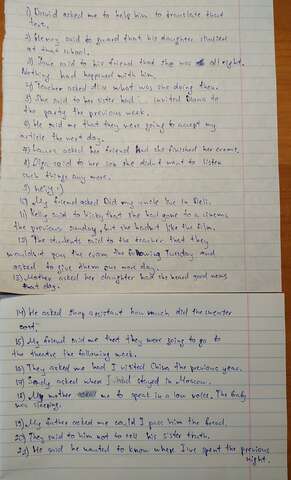 1) David asked me to help him to translate that
text.
2) Henry said to guard that his daughter studied
at that school.
3) Jane said to his friend that she was all right.
Nothing had happened with him.
4) Teacher asked Alex what was she doing then.
5) She said to her sister had ... invited Diana to
the party the previous week.
6) He said me that they were going to accept my
article the next day.
7) Laura asked her friend had she finished her exams.
8) Olga said to her son she didn't want to listen
such things any more.
9)
10) My friend asked Did my uncle live in Deli.
11) Kelly said to Nicky that she had gone to a cinema
the previous Sunday, but she hadn't like the film.
12) The students said to the teacher that they
wouldn't pass the exam the following Tuesday and
asked to give them one more day.
13) Mother asked her daughter had she heard good news
that day.
14) He asked shop assistant how much did the sweater
cost.
15) My friend said me that they were going to go to
the theatre the following week.
16) They asked me had I visited China the previous year.
17) asked when I had stayed in Moscow.
18) My mother asked me to speak in a low voice. The baby
was sleeping.
19) My father asked me could I pass him the bread.
20) They said to him not to tell his sister truth.
21) He said he wanted to know where I've spent the previous
night.